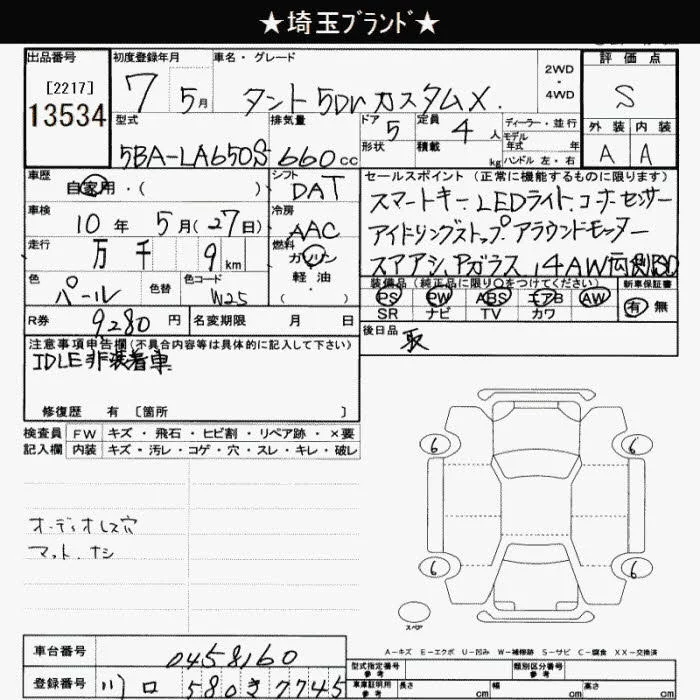 ★埼玉ﾌﾞﾗﾝﾄﾞ★
出品番号
[2217]
13534
初度登録年月
7 5月
車名・グレード
タント 5Dr カスタムX
2WD
・
4WD
評価点
S
外装 内装
A A
型式
5BA-LA650S
排気量
660 cc
ドア
5
形状
定員
4 人
積載
kg
ディーラー・並行
モデル
年式 年
ハンドル 左・右
車歴
自家用・( )
シフト
DAT
車検
10年 5月(27日)
冷房
AAC
走行
万 千 9 km
燃料
ガソリン
・
軽・油
( )
色
パール
色替
色コード
W25
セールスポイント(正常に機能するものに限ります)
スマートキー.LEDライト.コーナーセンサー
アイドリングストップ.アラウンドモニター
スマアシ.Pガラス.14AW.両側PSD
装備品(純正品に限り○をつけてください)
PS PW ABS エアB AW
SR ナビ TV カワ
新車保証書
有・無
R券
9280 円
名変期限 月 日
後日品
取
注意事項申告欄(不具合内容等は具体的に記入して下さい)
IDLE非装着車
修復歴 有 〔箇所 〕
検査員 FW キズ・飛石・ヒビ割・リペア跡・×要
記入欄 内装 キズ・汚レ・コゲ・穴・スレ・キレ・破レ
オーディオレス穴
マット.ナシ
6 6
6 6
スペア
A-キズ E-エクボ U-凹み W-補修跡 S-サビ C-腐食 XX-交換済
車台番号
0458160
登録番号
川口 580 き 7745
型式指定番号
参考
類別区分番号
参考
車庫証明用
参考
長さ cm
幅 cm
高さ cm